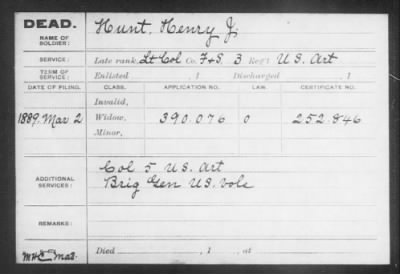 DEAD.
NAME OF SOLDIER: Hunt, Henry J.
SERVICE: Late rank, Lt Col Co. F+S, 3 Reg't U.S. Art
TERM OF SERVICE: Enlisted , 1 Discharged , 1
DATE OF FILING. CLASS. APPLICATION NO. LAW. CERTIFICATE NO.
Invalid,
1889, Mar 2 Widow, 390.076 0 252.846
Minor,
ADDITIONAL SERVICES: Col 5 U.S. Art
Brig Gen U.S. Vols
REMARKS:
Died , 1 , at